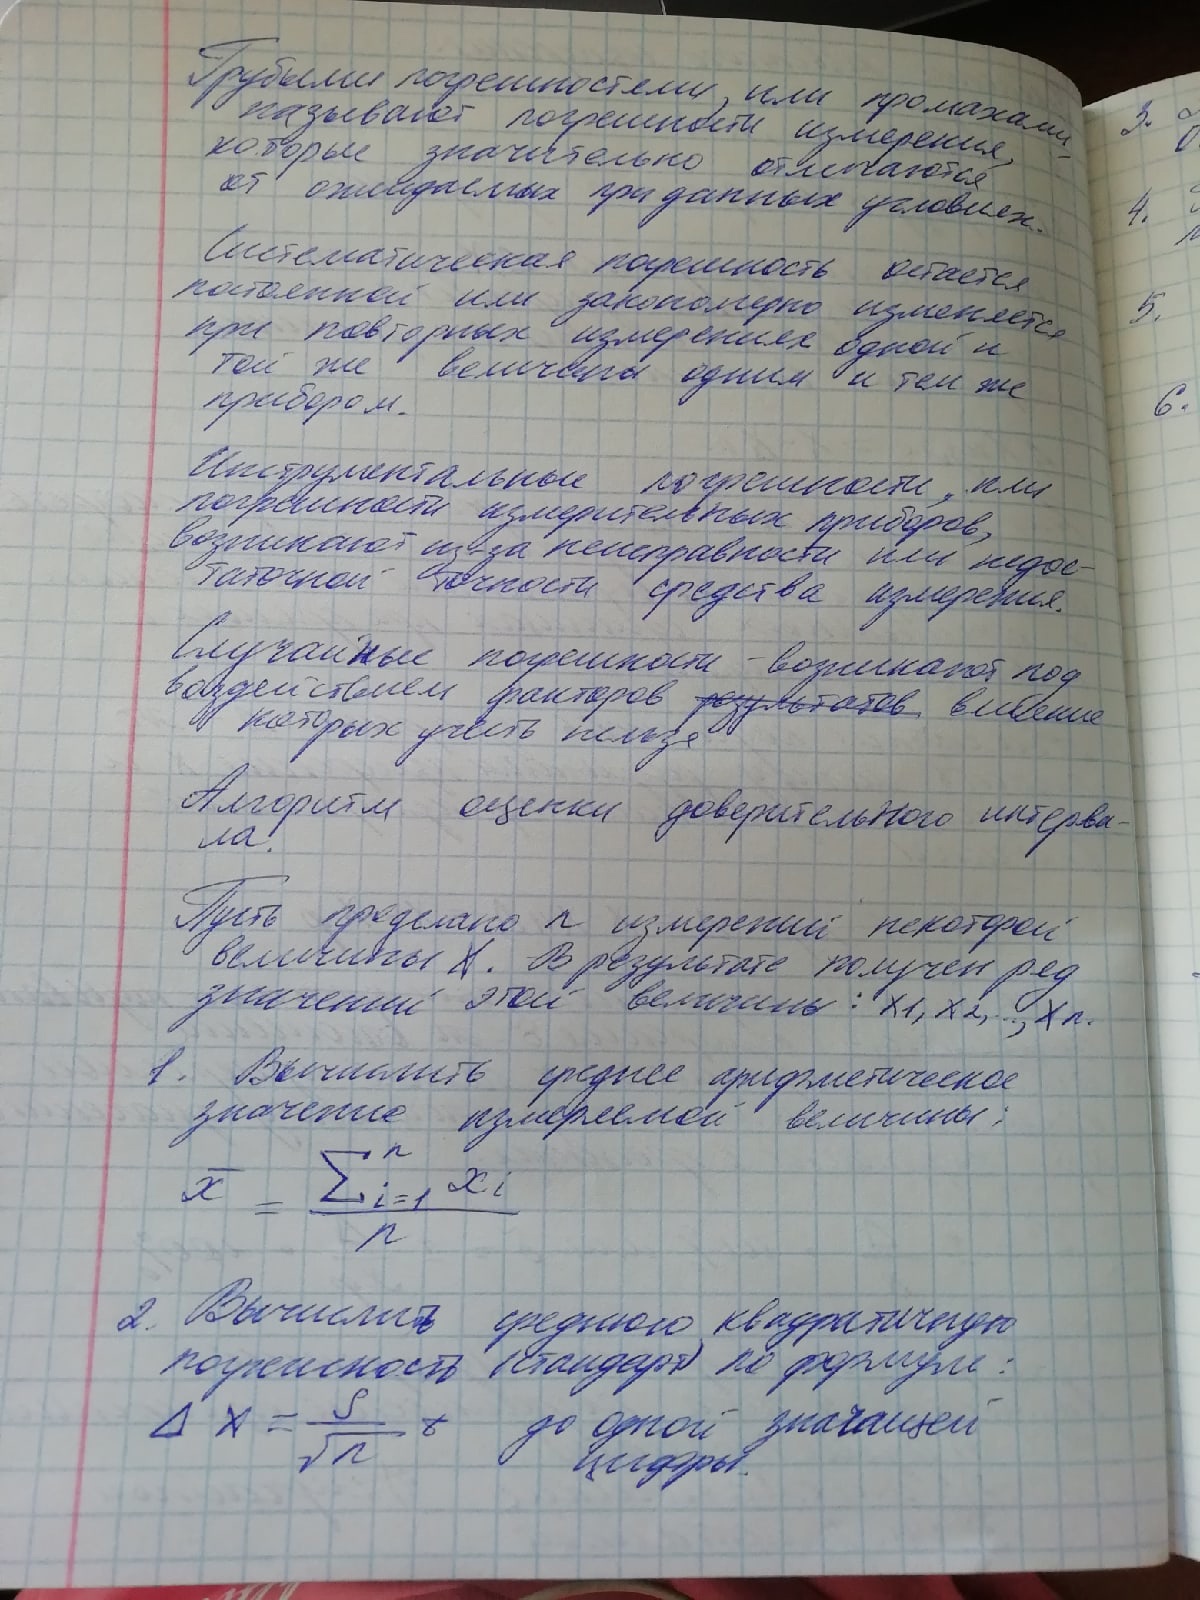 Грубыми погрешностями, или промахами,
называют погрешности измерения,
которые значительно отличаются
от ожидаемых при данных условиях.
Систематическая погрешность остается
постоянной или закономерно изменяется
при повторных измерениях одной и
той же величины одним и тем же
прибором.
Инструментальные погрешности, или
погрешности измерительных приборов,
возникают из-за неисправности или недос-
таточной точности средства измерения.
Случайные погрешности - возникают под
воздействием факторов результатов влияние
которых учесть нельзя
Алгоритм оценки доверительного интерва-
ла.
Пусть проделано n измерений некоторой
величины X. В результате получен ряд
значений этой величины: X1, X2, ..., Xn.
1. Вычислить среднее арифметическое
значение измеряемой величины:
x̄ = ∑ⁿᵢ₌₁ xi / n
2. Вычислить среднюю квадратичную
погрешность (стандарт) по формуле:
Δ X = S / √n до одной значащей
цифры.
3.
4.
5.
6.